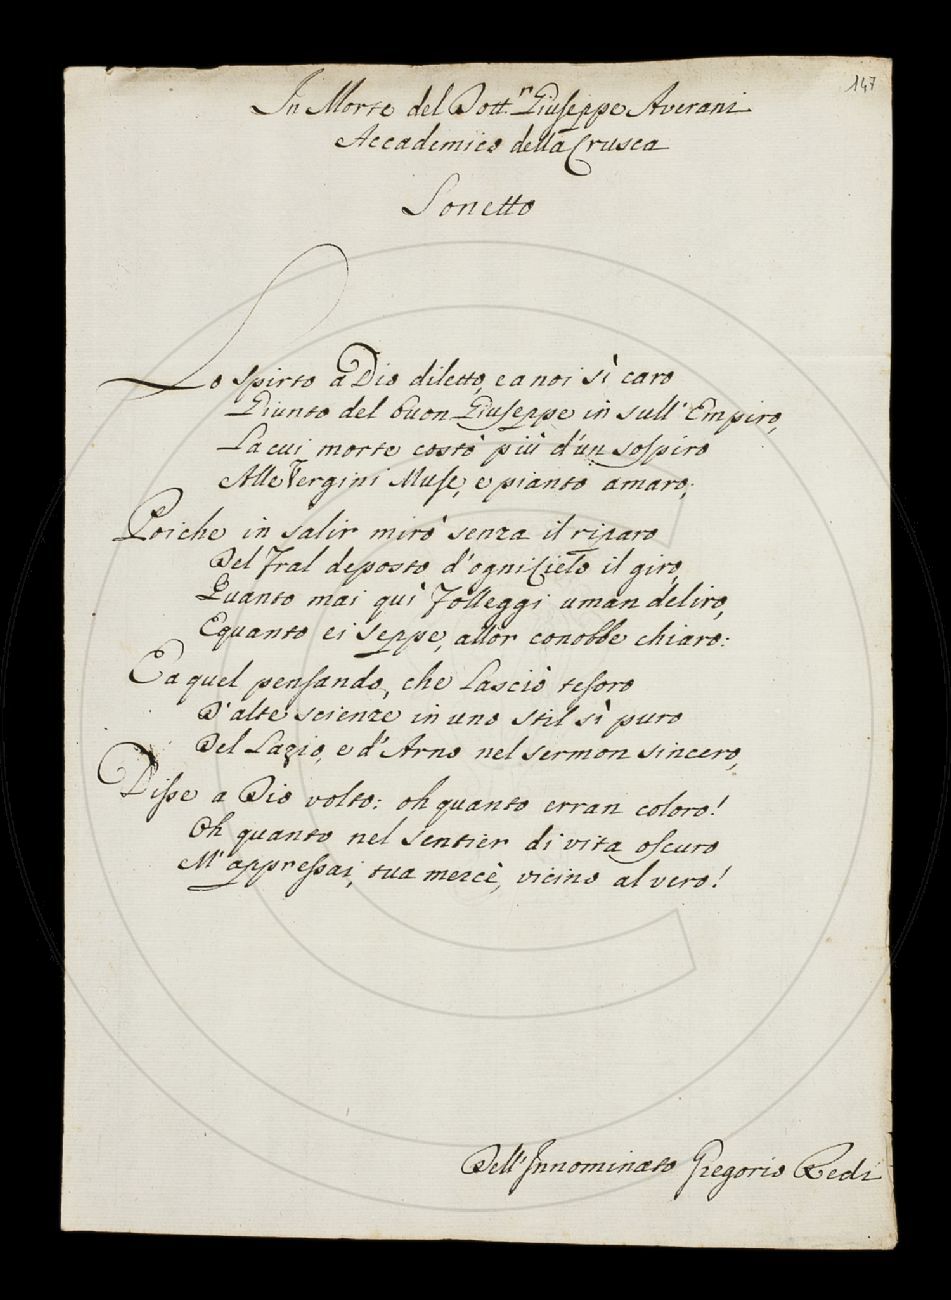 147
In Morte del Dott.r Giuseppe Averani
Accademico della Crusca
Sonetto
Lo spirto a Dio diletto, e a noi sì caro
Giunto del buon Giuseppe in sull' Empiro,
La cui morte costò più d'un sospiro
Alle Vergini Muse, e pianto amaro;
Poiche in salir mirò senza il riparo
Del Fral deposto d'ogni Cielo il giro,
Quanto mai quì folleggi uman deliro,
E quanto ei seppe, allor conobbe chiaro:
E a quel pensando, che lasciò tesoro
D'alte scienze in uno stil sì puro
Del Lazio, e d'Arno nel sermon sincero,
Disse a Dio volto: oh quanto erran coloro!
Oh quanto nel sentier di vita oscuro
M'appressai, tua mercè, vicino al vero!
Dell'Innominato Gregorio Redi